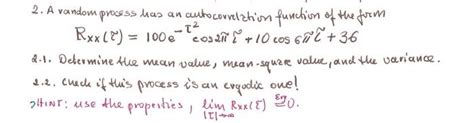 2. A random process has an autocorrelation function of the form
Rxx(τ) = 100e^-τ² cos2πτ + 10 cos 6πτ + 36
2.1. Determine the mean value, mean-square value, and the variance.
2.2. Check if this process is an ergodic one!
HINT: use the properties, lim |τ|→∞ Rxx(τ) Erg= 0.